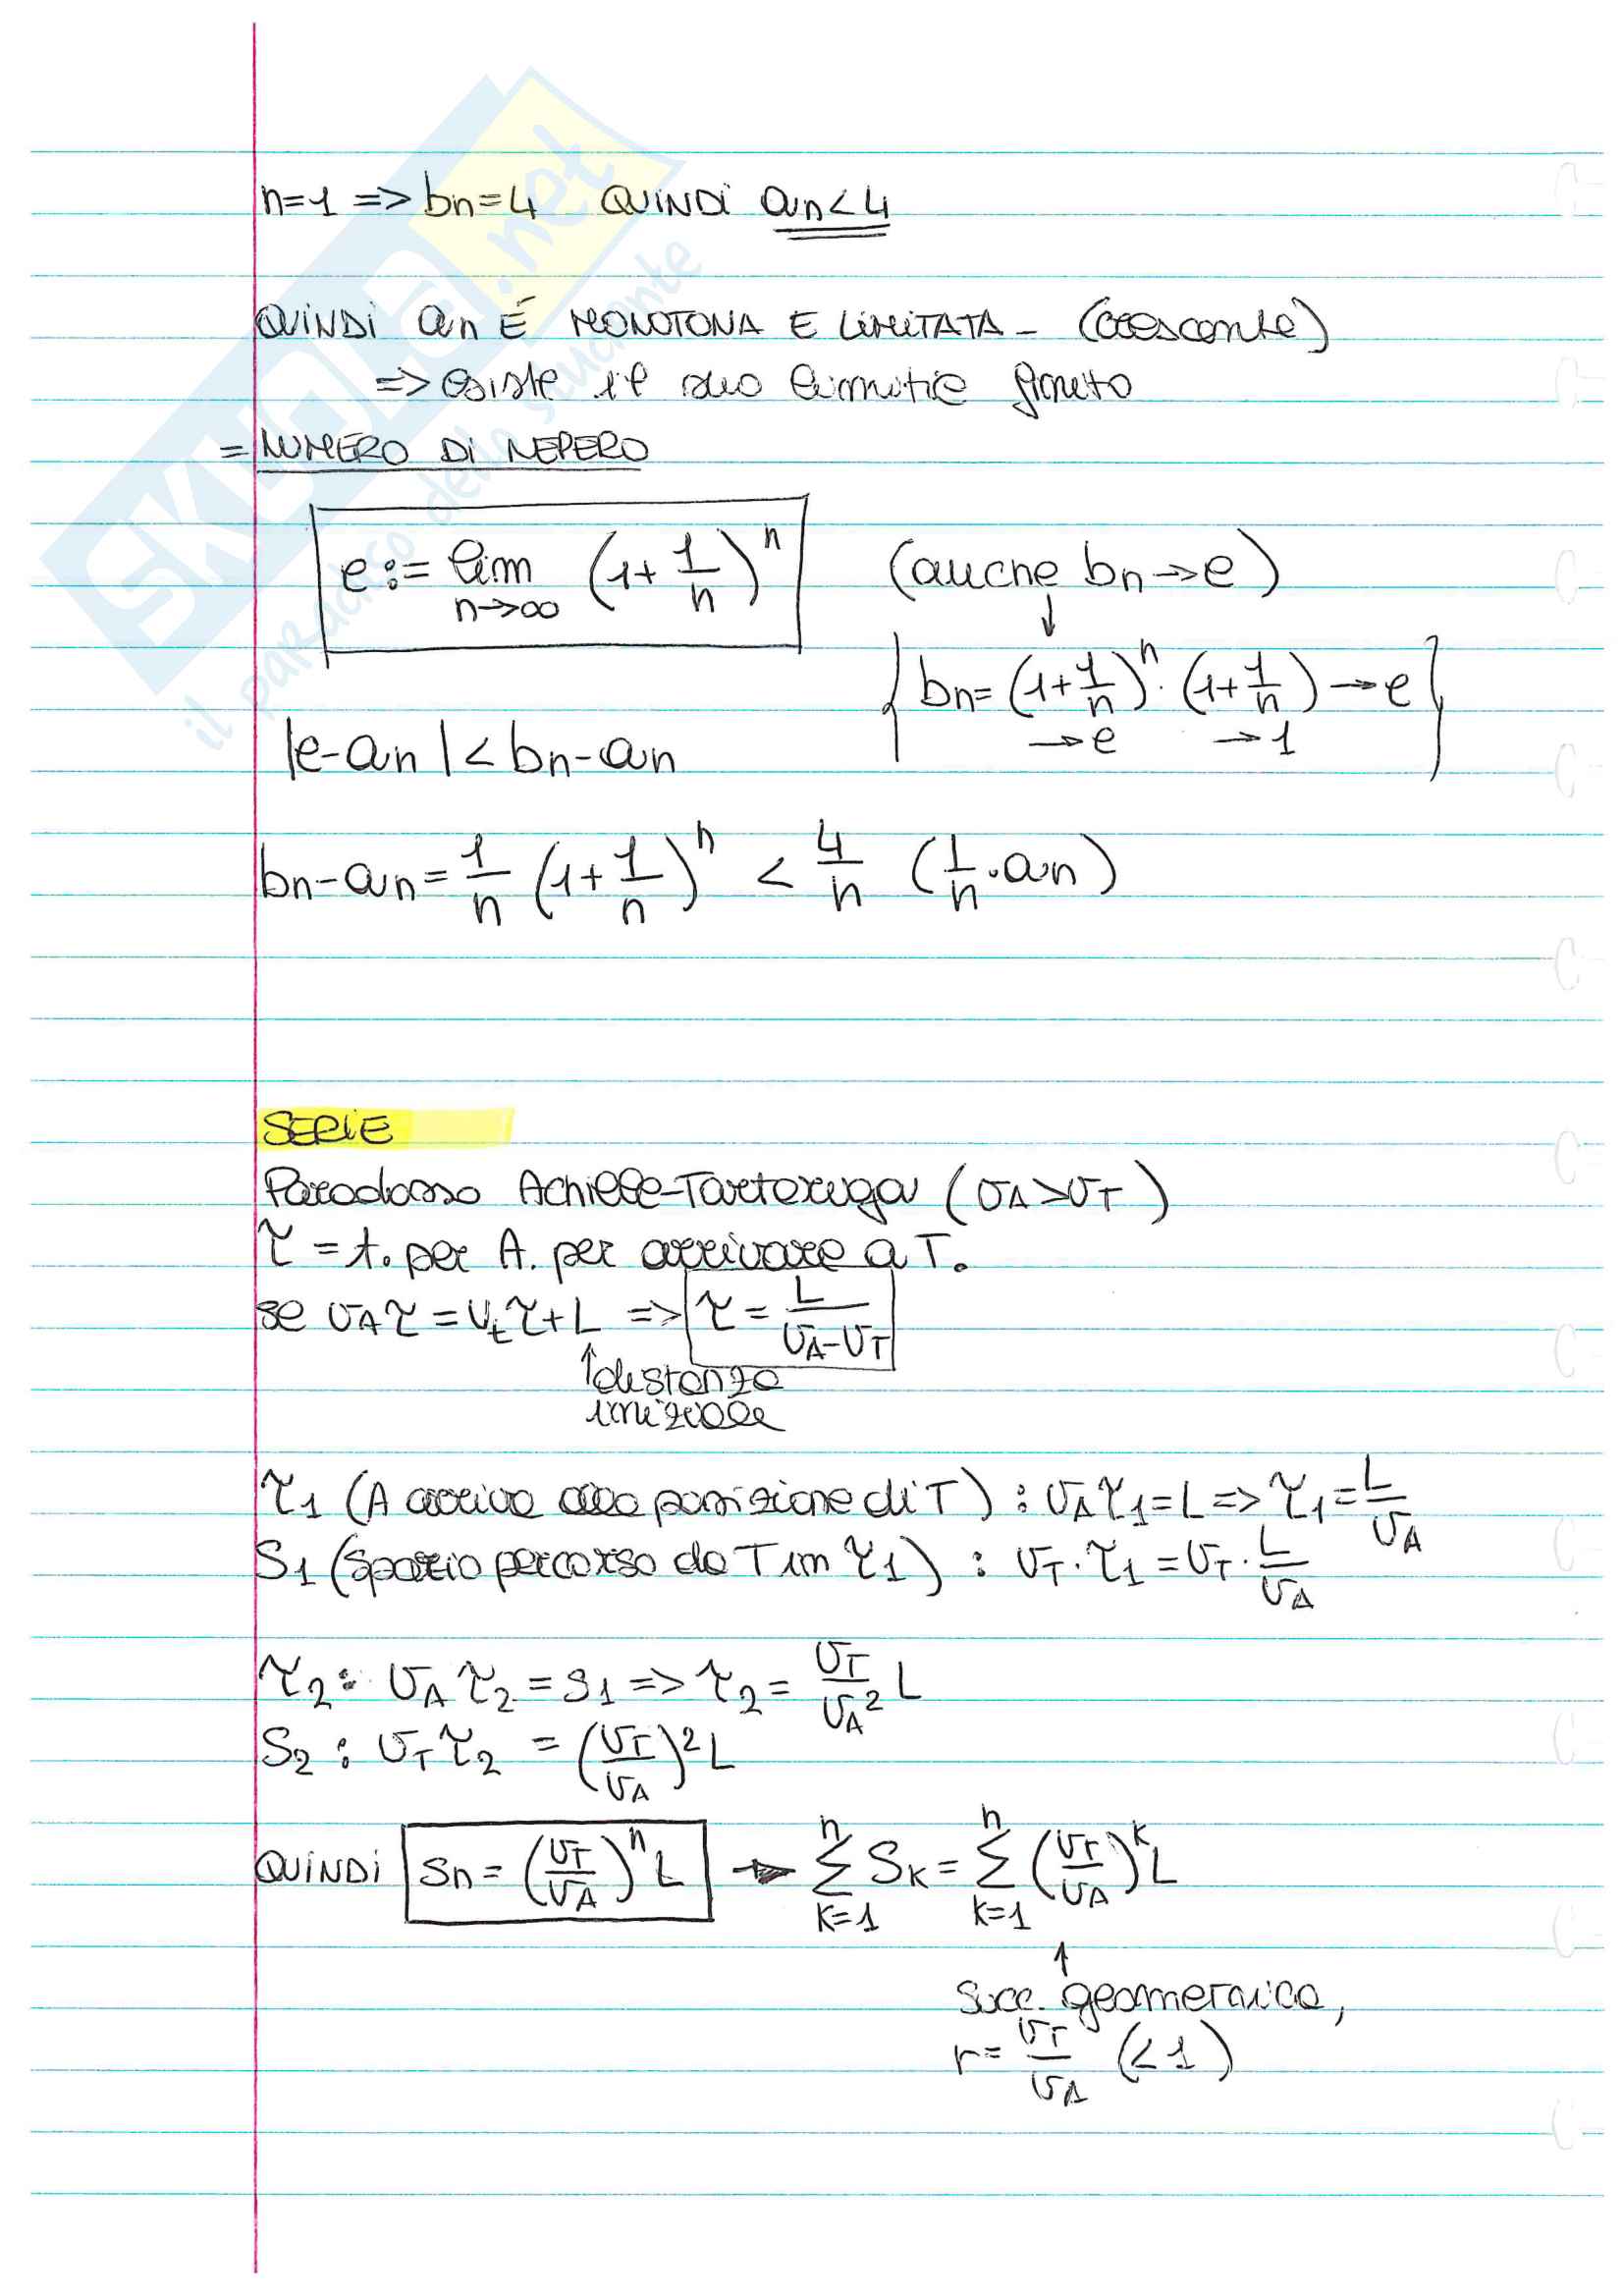 n=1 => bn=4 QUINDI an<4
QUINDI an É MONOTONA E LIMITATA - (crescente)
=> esiste il suo limite finito
= NUMERO DI NEPERO
e := lim n→∞ (1+1/n)^n (anche bn→e)
bn=(1+1/n)^n · (1+1/n) → e
→e →1
|e-an|<bn-an
bn-an=1/n (1+1/n)^n < 4/n (1/n·an)
SERIE
Paradosso Achille-Tartaruga (vA>vT)
τ = t. per A. per arrivare a T.
se vAτ = vtτ+L => τ = L/(vA-vT)
↑distanza
iniziale
τ1 (A arriva alla posizione di T) : vAτ1=L => τ1=L/vA
S1 (spazio percorso da T in τ1) : vT·τ1=vT·L/vA
τ2: vAτ2=s1 => τ2= vT/vA² L
S2 : vTτ2 = (vT/vA)²L
QUINDI Sn=(vT/vA)^n L → Σ(k=1..n) Sk = Σ(k=1..n) (vT/vA)^k L
↑
succ. geometrica,
r= vT/vA (<1)
SKUOLA.net
il paradiso dello studente